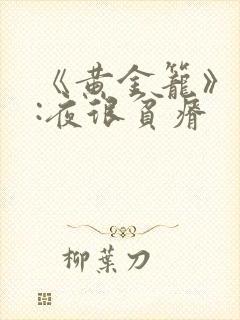 《黄金籠》
:夜很貧瘠
柳葉刀